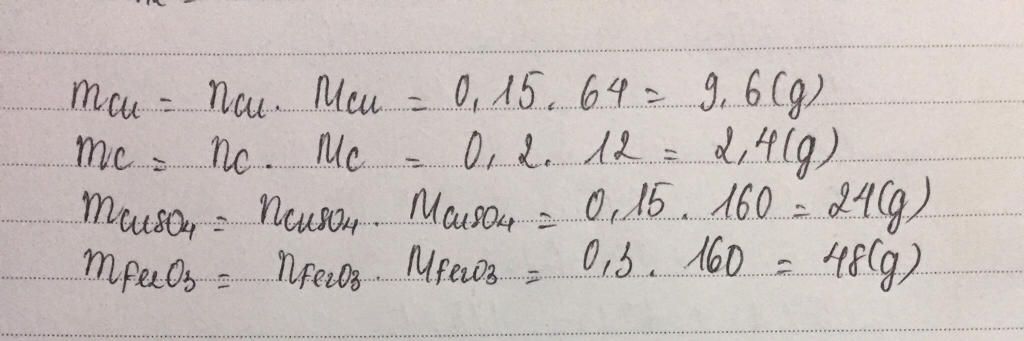 mCu = nCu. MCu = 0,15. 64 = 9,6(g)
mC = nC. MC = 0,2. 12 = 2,4(g)
mCuSO4 = nCuSO4. MCuSO4 = 0,15. 160 = 24(g)
mFe2O3 = nFe2O3. MFe2O3 = 0,3. 160 = 48(g)